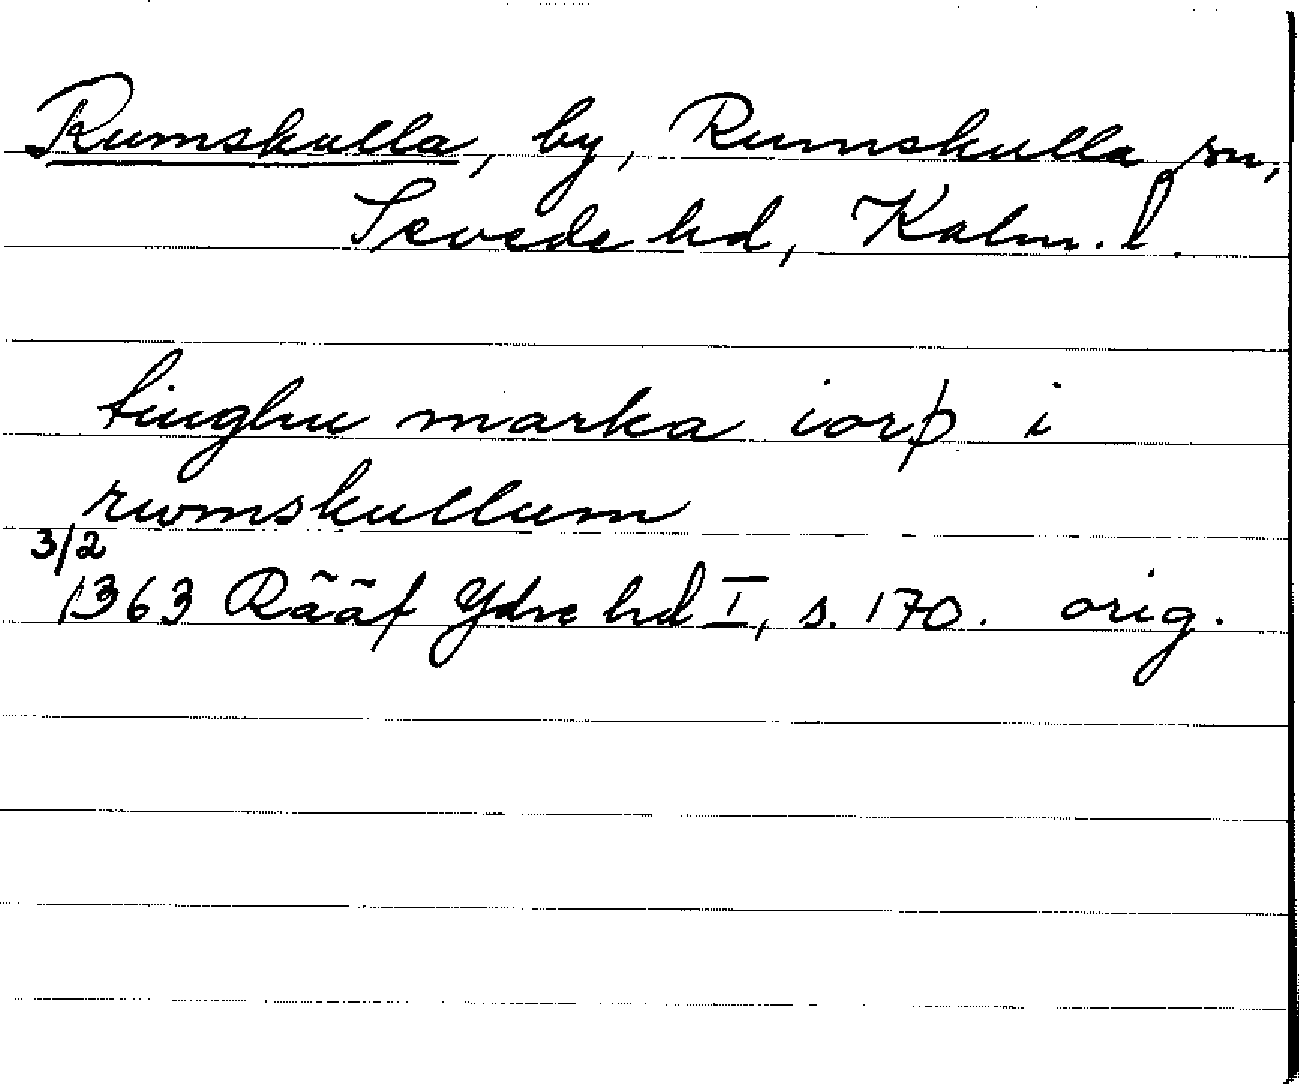 Rumskulla, by, Rumskulla sn,
Sevede hd, Kalm. l.
tinghu marka iorþ i
rwmskullum
3/2
1363 Rääf Ydre hd I, s. 170. orig.